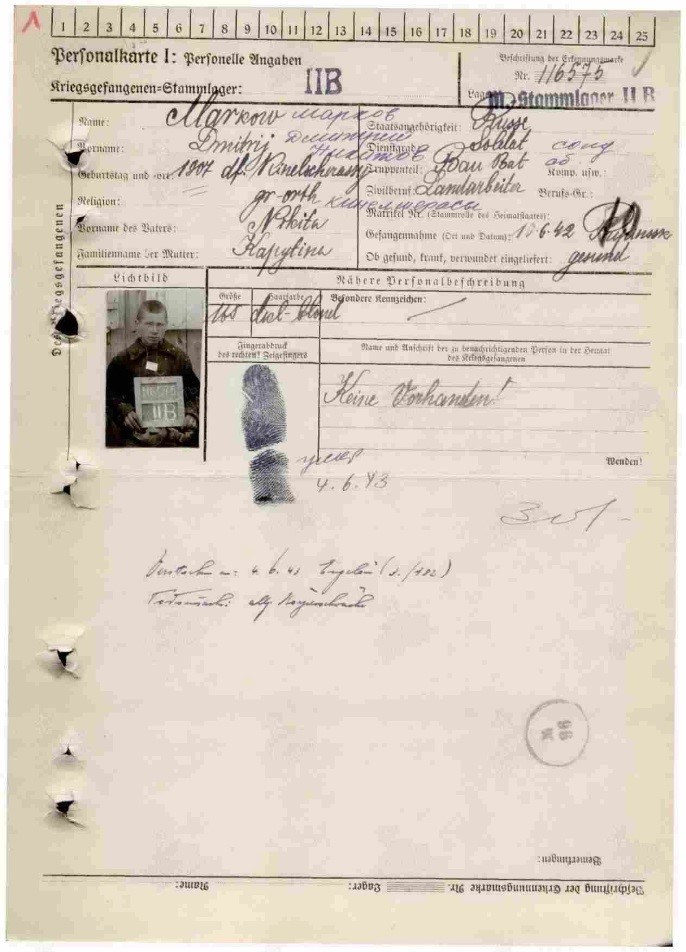 1 2 3 4 5 6 7 8 9 10 11 12 13 14 15 16 17 18 19 20 21 22 23 24 25
Personalkarte I: Personelle Angaben
Kriegsgefangenen-Stammlager: IIB
Beschriftung der Erkennungsmarke
Nr. 116575
Lager M. Stammlager II B
Name: Markow Марков
Vorname: Dmitrij Дмитрий
Geburtstag und -ort: 1907 df.
Religion: gr-orth
Vorname des Vaters: Nikita
Familienname der Mutter: Kapytina
Staatsangehörigkeit: Russe
Dienstgrad: Soldat солд
Truppenteil: Bau Bat Komp. usw.:
Zivilberuf: Landarbeiter Berufs-Gr.:
Matrikel Nr. (Stammrolle des Heimatstaates):
Gefangennahme (Ort und Datum): 10.6.42
Ob gesund, krank, verwundet eingeliefert: gesund
Des Kriegsgefangenen
Lichtbild
Nähere Personalbeschreibung
Größe Haarfarbe Besondere Kennzeichen:
168 dkl-blond
Fingerabdruck
des rechten! Zeigefingers
Name und Anschrift der zu benachrichtigenden Person in der Heimat
des Kriegsgefangenen
Keine Vorhanden!
IIB
Wenden!
4.6.43
Bemerkungen:
Beschriftung der Erkennungsmarke Nr. Lager: Name: